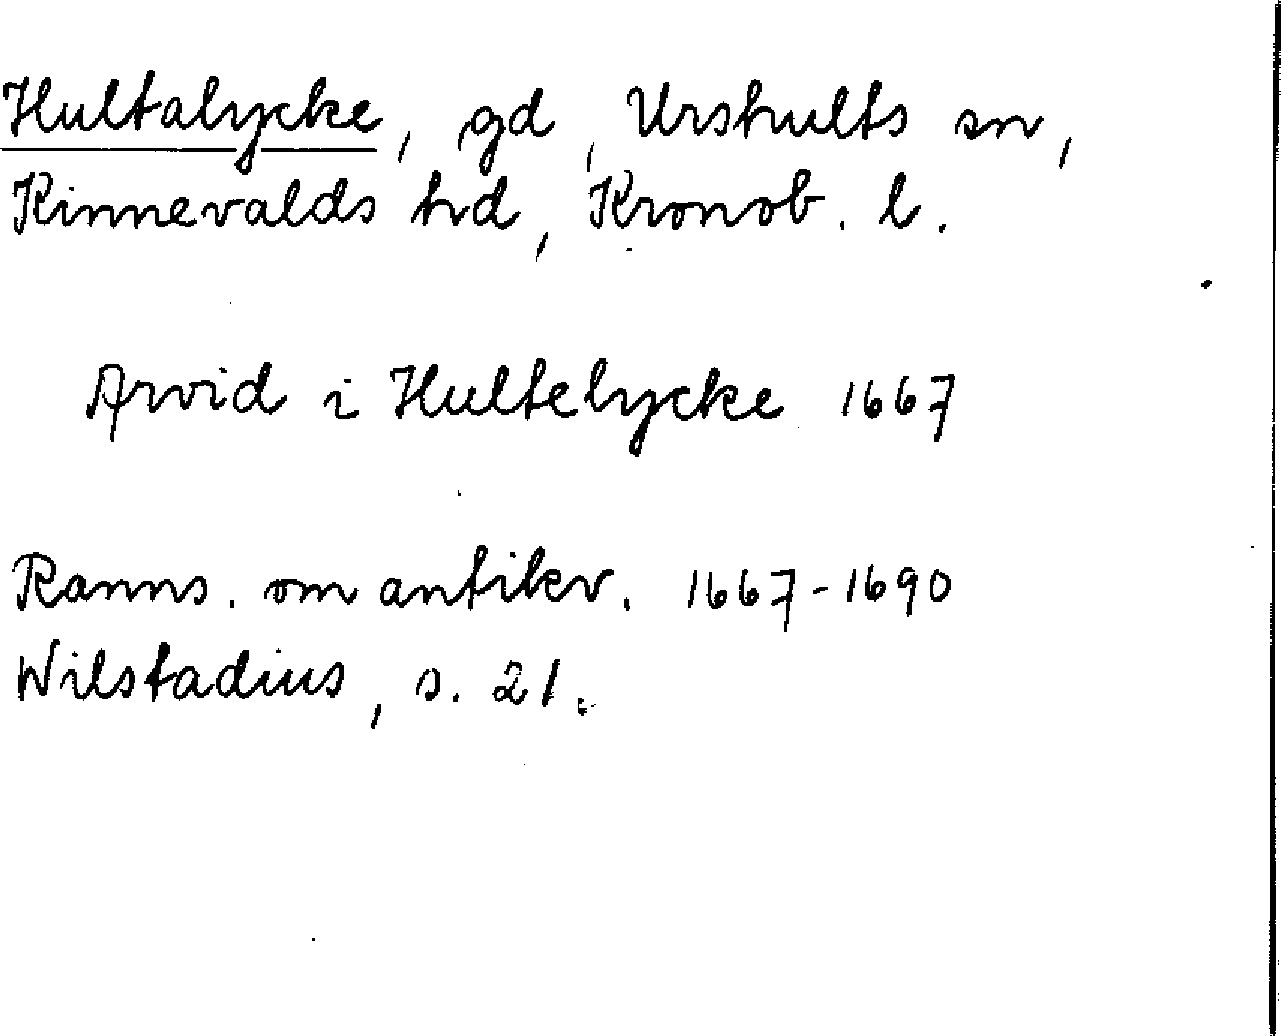 Hultalycke, gd, Urshults sn,
Kinnevalds hd, Kronob. l.
Arvid i Hultelycke 1667
Ranns. om antikv. 1667-1690
Wilstadius, s. 21.